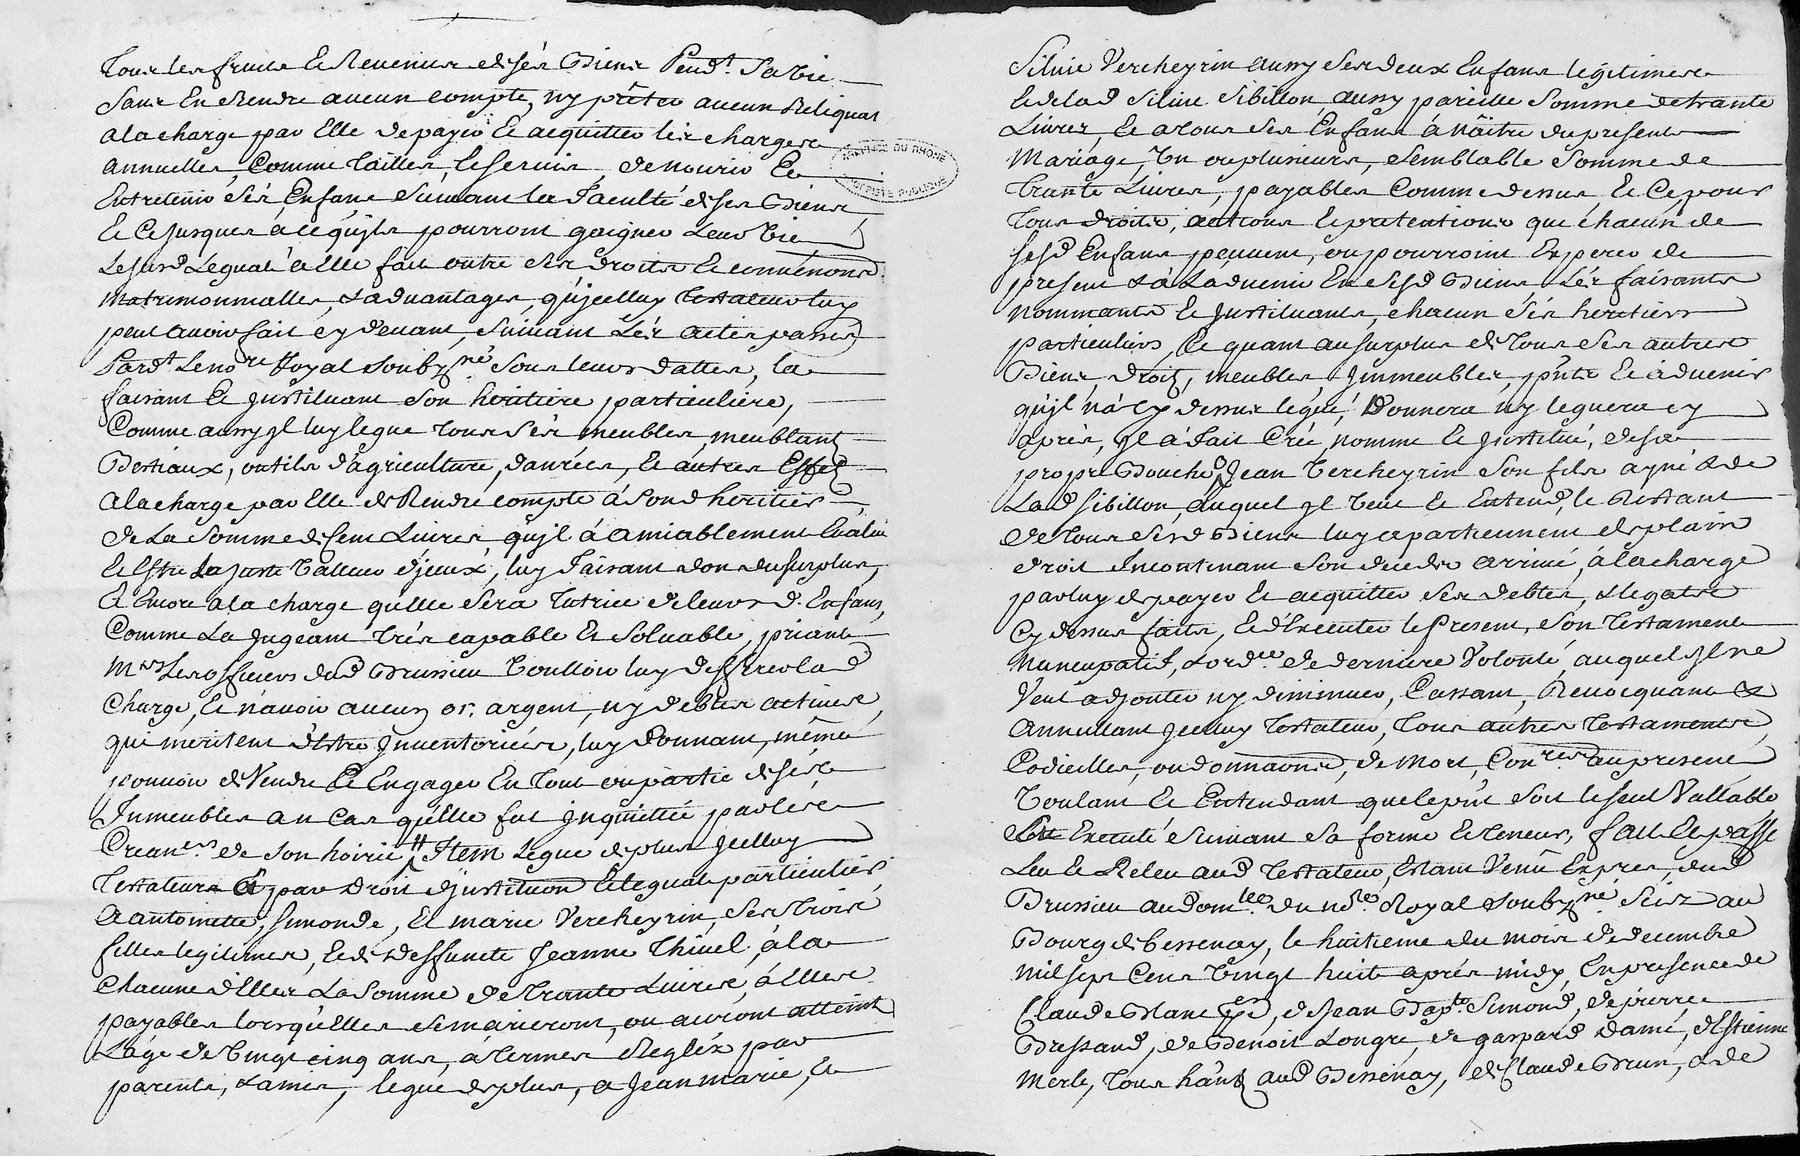 Tous les fruits & Revenus de ses Biens Pend.t Sa vie
Sans En Rendre aucun compte, ny préter aucun Reliquat
a la charge par Elle de payer & acquitter les charges
annuelles, Comme tailles, & servis, de nourir &
Entretenir ses Enfans suivant la Faculté de ses Biens
& Ce Jusques à ce qu'jls pourront gaigner Leur vie
Lesusd Legual à elle fait outre ses droits & convenôns
Matrimonnialles, & advantages, qu'jcelluy testateur luy
peut avoir fait cy devant, suivant les actes passés
Pard.t Le no.re Royal soubz.né sous leurs dattes, la
faisant & justituant son heritiere particuliere,
Comme aussy jl luy legue tous ses meubles meublants
Bestiaux, outils d'agriculture, danrées, & autres Effets
a la charge par Elle de Rendre compte à sond heritier
de La somme de Cent Livres qu'jl à amiablement Evalué
& Estre La juste Valleur d'jceux, luy Faisant don du surplus,
& Encore a la charge quelle sera tutrice de leurs d. Enfans,
Comme La jugeant très capable & solvable, priant
M.rs Les officiers dud Brussieu Voulloir luy defferer lad
Charge, & n'avoir aucun or, argent, ny debtes actives,
qui meritent d'Estre jnventoriées, luy donnant, même
pouvoir de Vendre & Engager En tout ou partie de ses
Inmeubles au Cas qu'elle fut jnquiettée par les
Crean.ers de son hoirie # Item Legue de plus jcelluy
Testateur & par droit d'justituôn & legual particulier
A antoinette, simonde, & marie Vercheyrin, ses trois
filles legitimes, & de deffuncte Jeanne Thivel, à la
Chacune d'Elles La somme de Trante Livres, à Elles
payables lorsqu'Elles se marieront, ou auront atteint
L'age de Vingt cinq ans, à termes Reglés par
parents, & amis, legue de plus, a Jean marie, &
Silvie Vercheyrin aussy ses deux Enfans legitimes
& de lad Silvie Sibillon, aussy pareille somme de trante
Livres, & a tous ses Enfans à nâitre du present
Mariage, Un ou plusieurs, semblable somme de
Trante Livres, payables Comme dessus, & Ce pour
Tous droits, actions & pretentions que chacun de
sesd Enfans peuvent, ou pourroint Esperer de
present & à L'advenir En sesd Biens Les faisants
nommants & justituants, chacun ses heritiers
particuliers, & quant au surplus de Tous ses autres
Biens, droits, meubles, jmmeubles, pnts & advenir
qu'jl n'à Cy dessus legué, Donnera ny leguera cy
après, jl à fait Créé, nommé & justitué, de sa
propre Bouche, Jean Vercheyrin son fils ayné & de
Lad Sibillon, auquel jl Veut & Entend, le Restant
de tous sesd Biens luy apartiennent de plain
droit Incontinant son deceds arrivé, à la charge
par luy de payer & acquitter ses debtes, & legats
Cy dessus faits, & d'Executer le Present, son Testament
Nuncupatif, & ord.ce de derniere Volonté, auquel jl ne
Veut adjouter ny diminuer, Cassant, Revocquant &
Annullant jcelluy testateur, tous autres Testaments,
Codicilles, ou donnaôns, de Mort, Con.res au present
Voulant & Entendant que le pnt soit le seul Vallable
Executé suivant sa forme & teneur, fait & passé
Leu & Releu aud Testateur, Estant Venu Exprès, dud
Brussieu au dom.lle du no.re Royal soubz.né sciz au
Bourg de bessenay, le huitieme du mois de decembre
Mil sept Cens Vingt huit après midy, En presence de
Claude Blanc, de Jean Bap.te Simond, de pierre
Bressand, de Benoit Longre, de gaspard damé, d'Estienne
Merle, tous hants aud Bessenay, de Claude Brun, & de
ARCHIVES DU RHÔNE